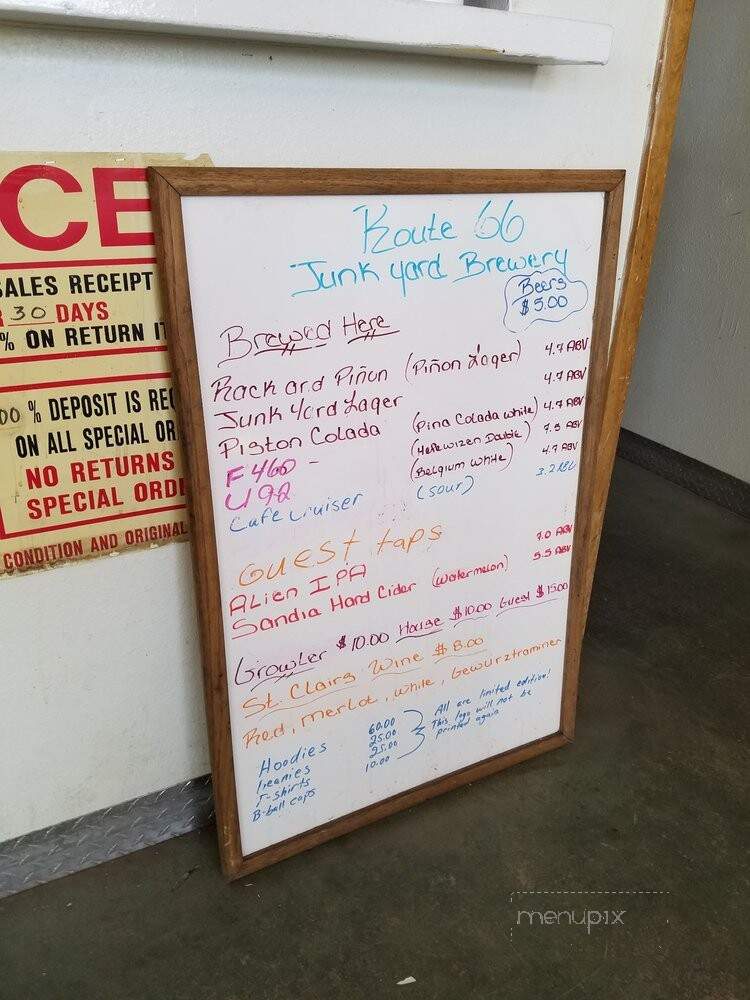 CE
SALES RECEIPT
30 DAYS
% ON RETURN IT
00 % DEPOSIT IS RE
ON ALL SPECIAL OR
NO RETURNS
SPECIAL ORD
CONDITION AND ORIGINAL
Route 66
Junk yard Brewery
Beers
$5.00
Brewed Here
Rack ard Piñon (Piñon Lager) 4.7 ABV
Junk Yard Lager 4.7 ABV
Piston Colada (Pina Colada white) 4.7 ABV
F460 - (Hefewizen Double) 7.5 ABV
U92 (Belgium White) 4.7 ABV
Cafe Cruiser (Sour) 3.2 ABV
Guest taps
Alien IPA 7.0 ABV
Sandia Hard Cider (watermelon) 5.5 ABV
Growler $10.00 House $10.00 Guest $15.00
St. Clairs Wine $8.00
Red, merlot, white, Gewurztraminer
Hoodies 60.00
Beanies 25.00
T-Shirts 25.00
B-ball caps 10.00
All are limited edition!
This logo will not be
printed again
menupix